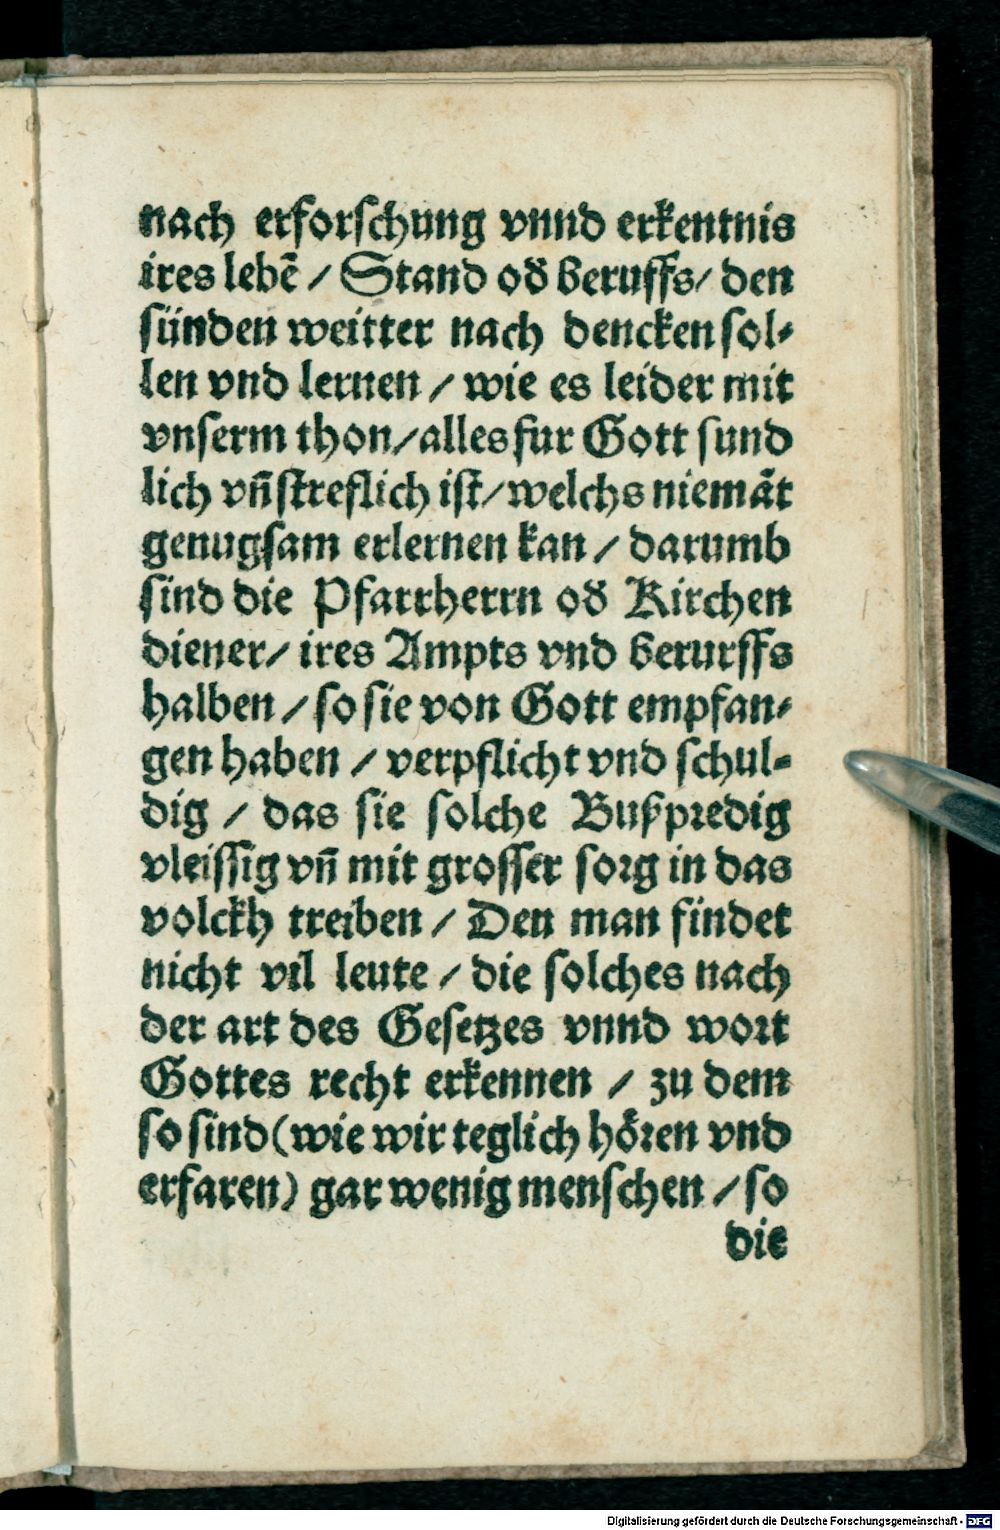 nach erforschung vnnd erkentnis
ires lebẽ / Stand od̕ beruffs / den
sünden weitter nach dencken sol-
len vnd lernen / wie es leider mit
vnserm thon / alles fur Gott sund
lich vñ streflich ist / welchs niemãt
genugsam erlernen kan / darumb
sind die Pfarrherrn od̕ Kirchen
diener / ires Ampts vnd berurffs
halben / so sie von Gott empfan-
gen haben / verpflicht vnd schul-
dig / das sie solche Bußpredig
vleissig vñ mit grosser sorg in das
volckh treiben / Den man findet
nicht vil leute / die solches nach
der art des Gesetzes vnnd wort
Gottes recht erkennen / zu dem
so sind (wie wir teglich hören vnd
erfaren) gar wenig menschen / so
die
Digitalisierung gefördert durch die Deutsche Forschungsgemeinschaft - DFG